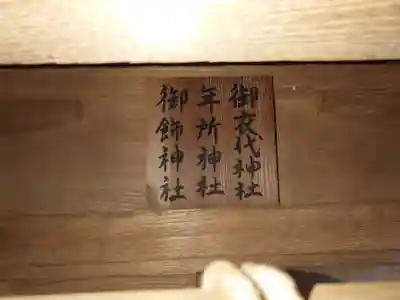 御衣代神社
年所神社
御飾神社